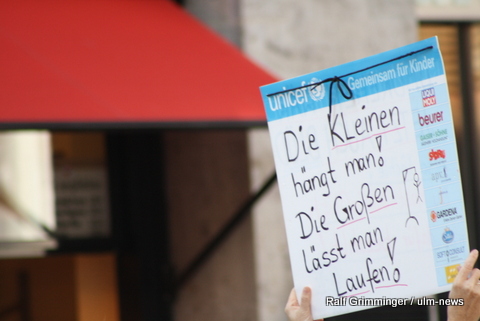 unicef Gemeinsam für Kinder
Die Kleinen
hängt man!
Die Großen
lässt man
Laufen!
LIQUI
MOLY
beurer
GARDENA
Ralf Grimminger / ulm-news